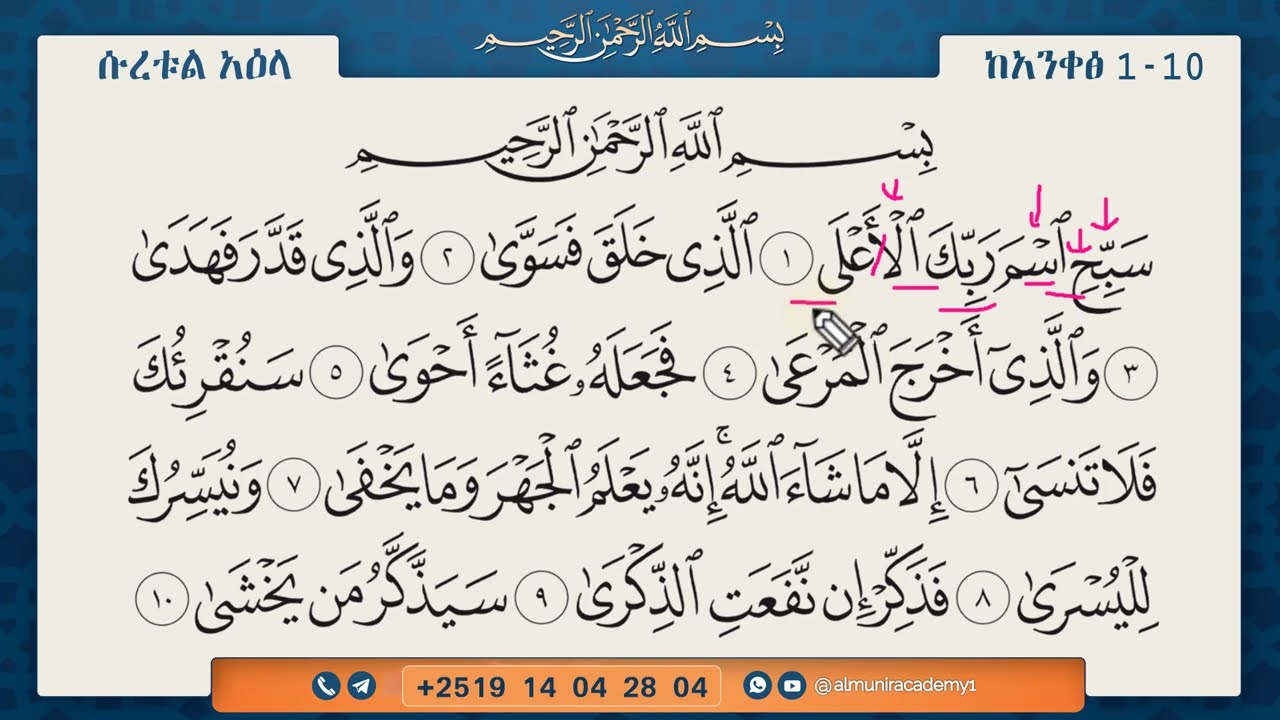 بِسْمِ ٱللَّهِ ٱلرَّحْمَٰنِ ٱلرَّحِيمِ
ሱረቱል አዕላ
ከአንቀፅ 1 - 10
بِسْمِ ٱللَّهِ ٱلرَّحْمَٰنِ ٱلرَّحِيمِ
سَبِّحِ ٱسْمَ رَبِّكَ ٱلْأَعْلَى ١ ٱلَّذِى خَلَقَ فَسَوَّىٰ ٢ وَٱلَّذِى قَدَّرَ فَهَدَىٰ
٣ وَٱلَّذِىٓ أَخْرَجَ ٱلْمَرْعَىٰ ٤ فَجَعَلَهُۥ غُثَآءً أَحْوَىٰ ٥ سَنُقْرِئُكَ
فَلَا تَنسَىٰٓ ٦ إِلَّا مَا شَآءَ ٱللَّهُ ۚ إِنَّهُۥ يَعْلَمُ ٱلْجَهْرَ وَمَا يَخْفَىٰ ٧ وَنُيَسِّرُكَ
لِلْيُسْرَىٰ ٨ فَذَكِّرْ إِن نَّفَعَتِ ٱلذِّكْرَىٰ ٩ سَيَذَّكَّرُ مَن يَخْشَىٰ ١٠
+2519 14 04 28 04
@almuniracademy1